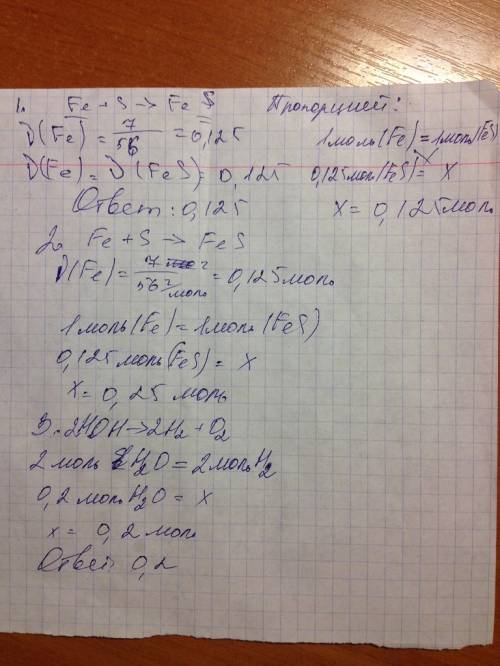 1. Fe + S → FeS
ν(Fe) = 7/56 = 0,125
ν(Fe) = ν(FeS) = 0,125
Ответ: 0,125
Пропорцией:
1 моль (Fe) = 1 моль (FeS)
0,125 моль (FeS) = x
x = 0,125 моль
2. Fe + S → FeS
ν(Fe) = 7 г / 56 г/моль = 0,125 моль
1 моль (Fe) = 1 моль (FeS)
0,125 моль (FeS) = x
x = 0,25 моль
3. 2HOH → 2H₂ + O₂
2 моль H₂O = 2 моль H₂
0,2 моль H₂O = x
x = 0,2 моль
Ответ 0,2